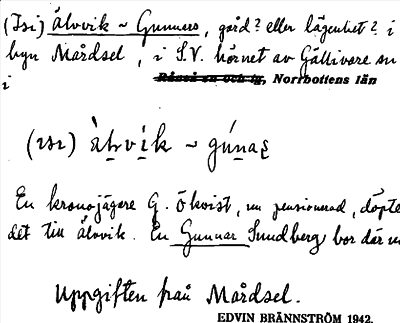 (Isi) Älvvik ~ Gunnars, gård? eller lägenhet? i
byn Mårdsel, i S.V. hörnet av Gällivare sn
i Råneå sn och tg, Norrbottens län
(ısı) ä̀lvík ~ gúnaṣ
En kronojägare G. Ökvist, nu pensionerad, döpte
det till Älvvik. En Gunnar Sundberg bor där nu
Uppgiften från Mårdsel.
EDVIN BRÄNNSTRÖM 1942.